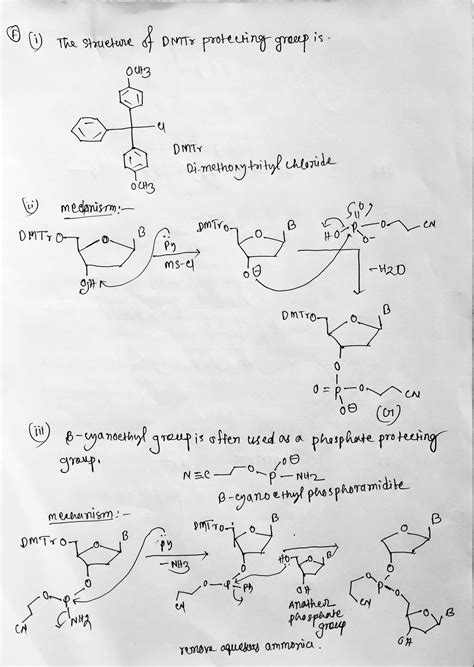 Ⓕ (i) The structure of DMTr protecting group is.
OCH3
Cl
DMTr
Di-methoxytrityl chloride
OCH3
(ii) mechanism:-
DMTrO O B Py MS-Cl DMTrO O B HO P O O- O CN
O:H O⊖ -H2O
DMTrO O B
O
O = P - O CN
O⊖ (G1)
(iii) β-cyanoethyl group is often used as a phosphate protecting
group.
N≡C O - P - NH2 O⊖
β-cyanoethyl phosphoramidite
mechanism:-
DMTrO O B :Py -NH3 DMTrO O B O B
O O HO O B O
O - P O - P = Py OH O - P - O
CN NH2 CN Another CN O B
phosphate
group OH
remove aqueous ammonia.